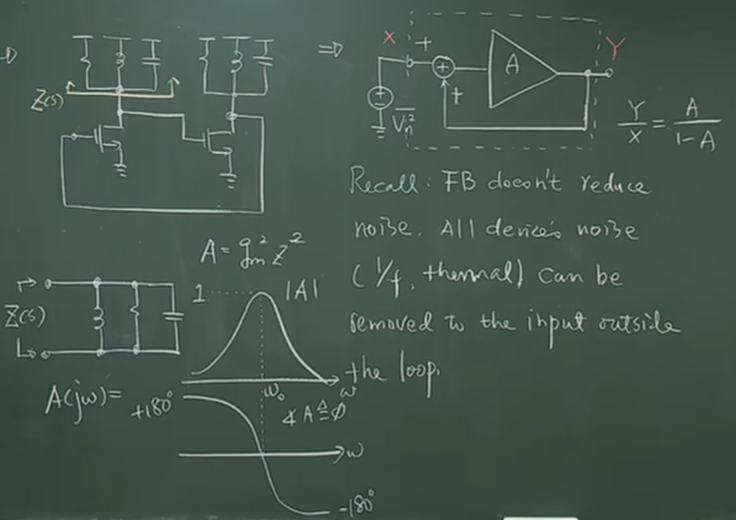 ⇒
Z(s)
X
+
+
+
A
Y
V̅n²
Y/X = A/(1-A)
Recall: FB doesn't reduce
noise. All device's noise
(1/f, thermal) can be
removed to the input outside
the loop.
A = gm² Z²
1
|A|
ω₀
ω
Z(s)
A(jω)=
+180°
∡A ≜ φ
ω
-180°